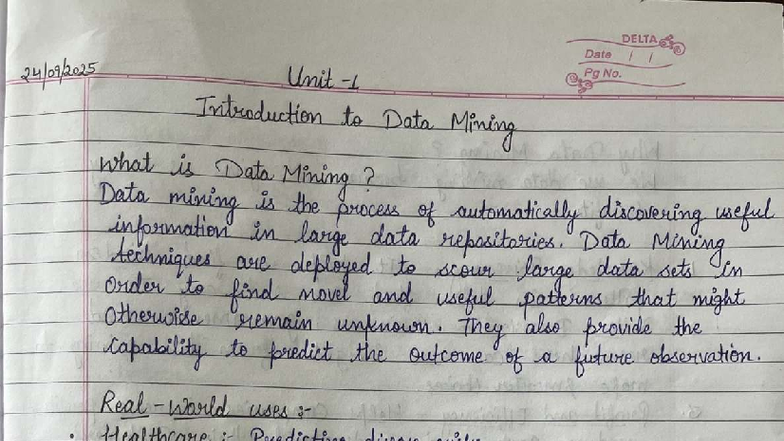 DELTA
Date / /
Pg No.
24/09/2025
Unit - 1
Introduction to Data Mining
what is Data Mining ?
Data mining is the process of automatically discovering useful
information in large data repositories. Data Mining
techniques are deployed to scour large data sets in
order to find novel and useful patterns that might
otherwise remain unknown. They also provide the
capability to predict the outcome of a future observation.
Real-World uses :-
• Healthcare :- Predicting disease